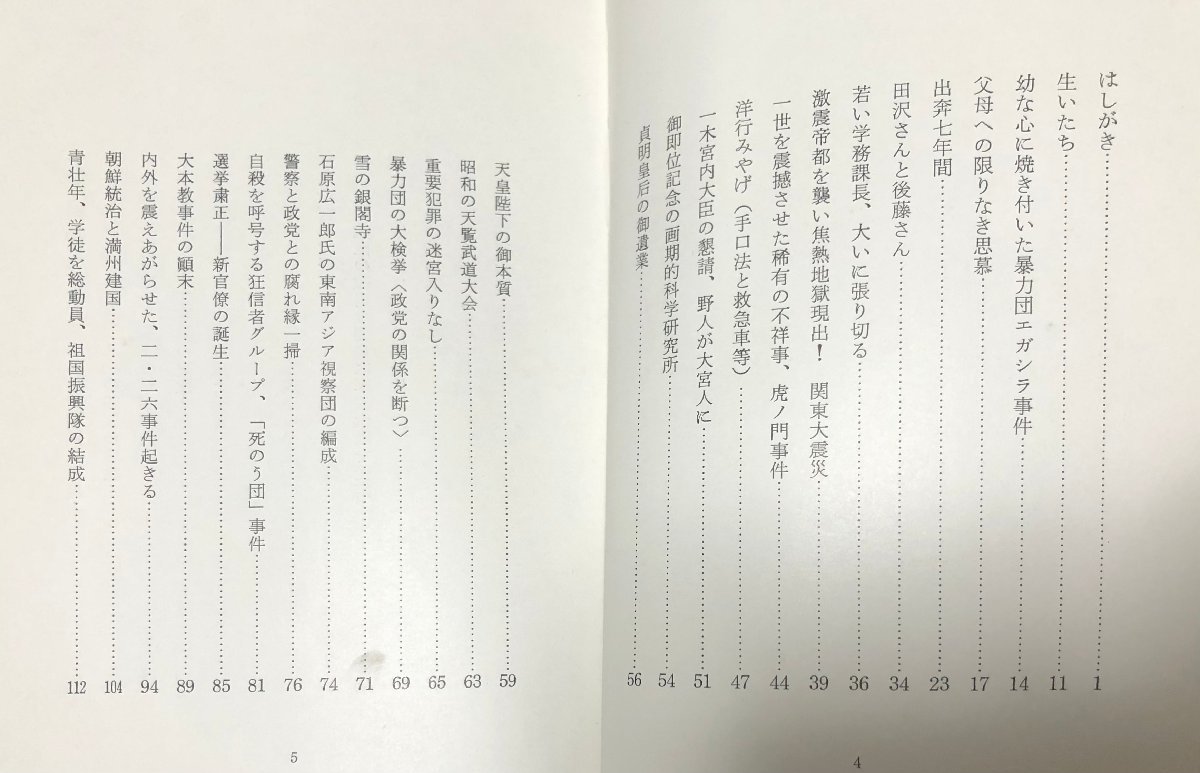 はしがき……………1
生いたち……………11
幼な心に焼き付いた暴力団エガシラ事件……………14
父母への限りなき思慕……………17
出奔七年間……………23
田沢さんと後藤さん……………34
若い学務課長、大いに張り切る……………36
激震帝都を襲い焦熱地獄現出！　関東大震災……………39
一世を震撼させた稀有の不祥事、虎ノ門事件……………44
洋行みやげ（手口法と救急車等）……………47
一木宮内大臣の懇請、野人が大宮人に……………51
御即位記念の画期的科学研究所……………54
貞明皇后の御遺業……………56
4
天皇陛下の御本質……………59
昭和の天覧武道大会……………63
重要犯罪の迷宮入りなし……………65
暴力団の大検挙〈政党の関係を断つ〉……………69
雪の銀閣寺……………71
石原広一郎氏の東南アジア視察団の編成……………74
警察と政党との腐れ縁一掃……………76
自殺を呼号する狂信者グループ、「死のう団」事件……………81
選挙粛正――新官僚の誕生……………85
大本教事件の顚末……………89
内外を震えあがらせた、二・二六事件起きる……………94
朝鮮統治と満州建国……………104
青壮年、学徒を総動員、祖国振興隊の結成……………112
5